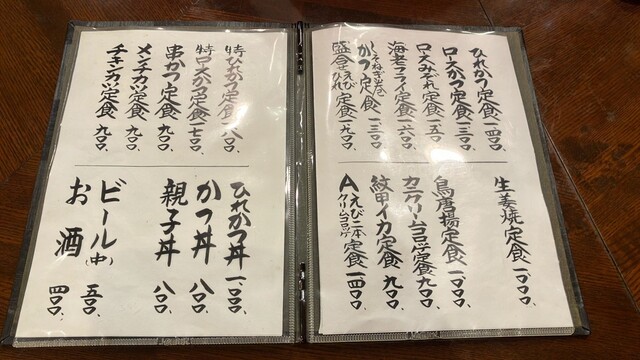 ひれかつ定食 一、四〇〇、
ロースかつ定食 一、三〇〇、
ロースみぞれ定食 一、五〇〇、
海老フライ定食 一、六〇〇、
かつ定食 一、三〇〇、
盛合せ えび ひれ 定食 一、九〇〇、
生姜焼定食 一、〇〇〇、
鳥唐揚定食 一、〇〇〇、
カニクリームコロッケ定食 九〇〇、
紋甲イカ定食 九〇〇、
A えび二本 クリームコロッケ 定食 一、四〇〇、
特ひれかつ定食 一、八〇〇、
特ロースかつ定食 一、七〇〇、
串かつ定食 九〇〇、
メンチカツ定食 九〇〇、
チキンカツ定食 九〇〇、
ひれかつ丼 一、〇〇〇、
かつ丼 八〇〇、
親子丼 八〇〇、
ビール(中) 五〇〇、
お酒 四〇〇、